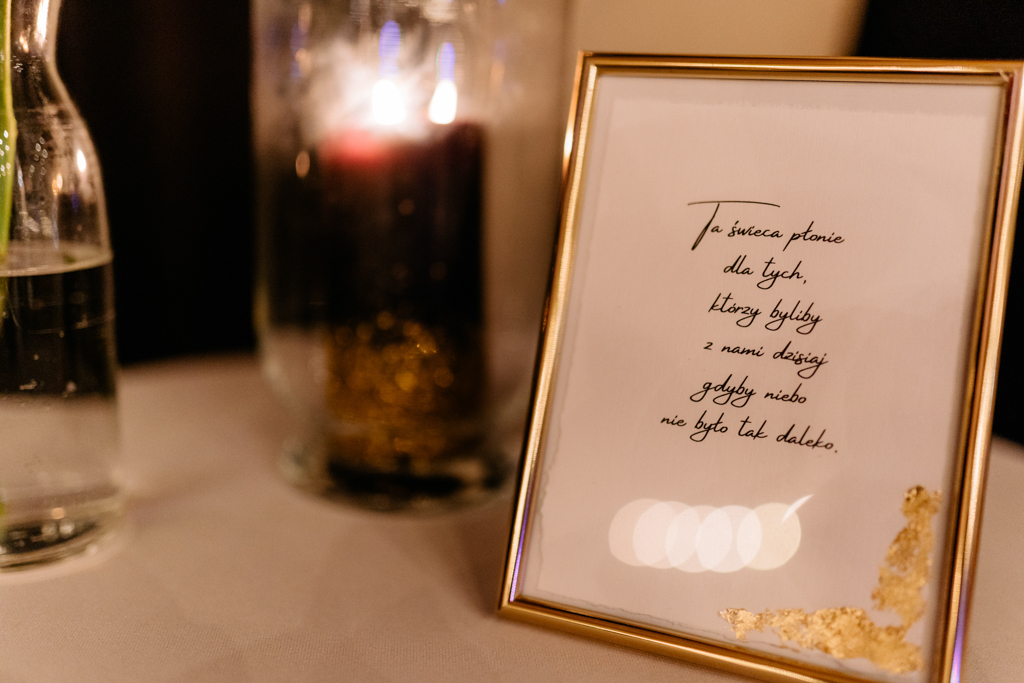 Ta świeca płonie
dla tych,
którzy byliby
z nami dzisiaj
gdyby niebo
nie było tak daleko.